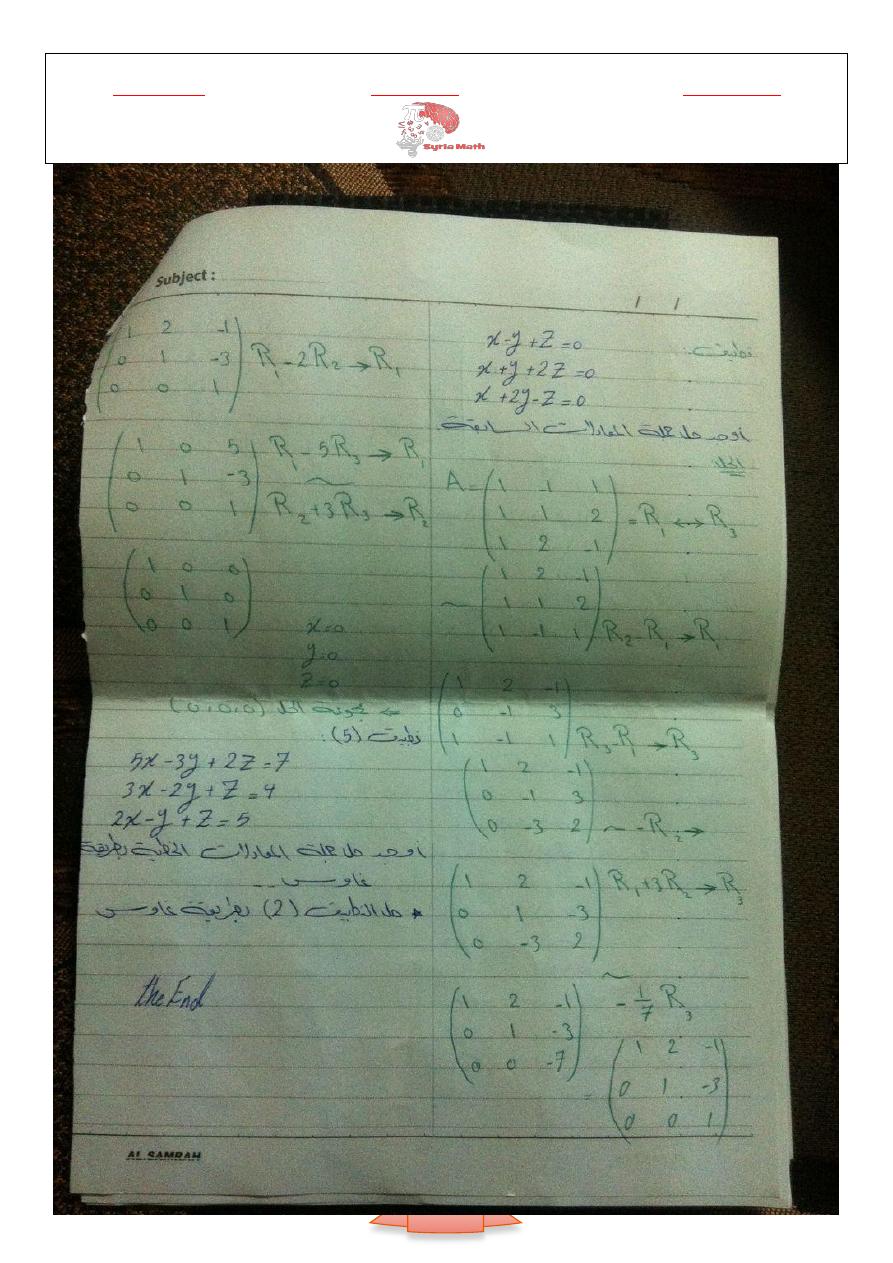 Syria Math
Subject :
/ /
تطبيق:
x-y+z=0
x+y+2z=0
x+2y-z=0
أوجد حل جملة المعادلات السابقة.
الحل
A = (1 -1 1
1 1 2
1 2 -1) = R₁ ↔ R₃
~ (1 2 -1
1 1 2
1 -1 1) R₂-R₁ → R₁
(1 2 -1
0 -1 3
1 -1 1) R₃-R₁ → R₃
(1 2 -1
0 -1 3
0 -3 2) ~ -R₂ →
(1 2 -1
0 1 -3
0 -3 2) R₁+3R₂ → R₃
~
(1 2 -1
0 1 -3
0 0 -7) -1/7 R₃
= (1 2 -1
0 1 -3
0 0 1)
(1 2 -1
0 1 -3
0 0 1) R₁-2R₂ → R₁
(1 0 5
0 1 -3
0 0 1) R₁-5R₃ → R₁
~
R₂+3R₃ → R₂
(1 0 0
0 1 0
0 0 1)
x=0
y=0
z=0
الحل (0,0,0)
تطبيق (5):
5x-3y+2z=7
3x-2y+z=4
2x-y+z=5
أوجد حل جملة المعادلات الخطية بطريقة
غاوس ..
* حل التطبيق (2) بطريقة غاوس
the End
AL SAMRAH